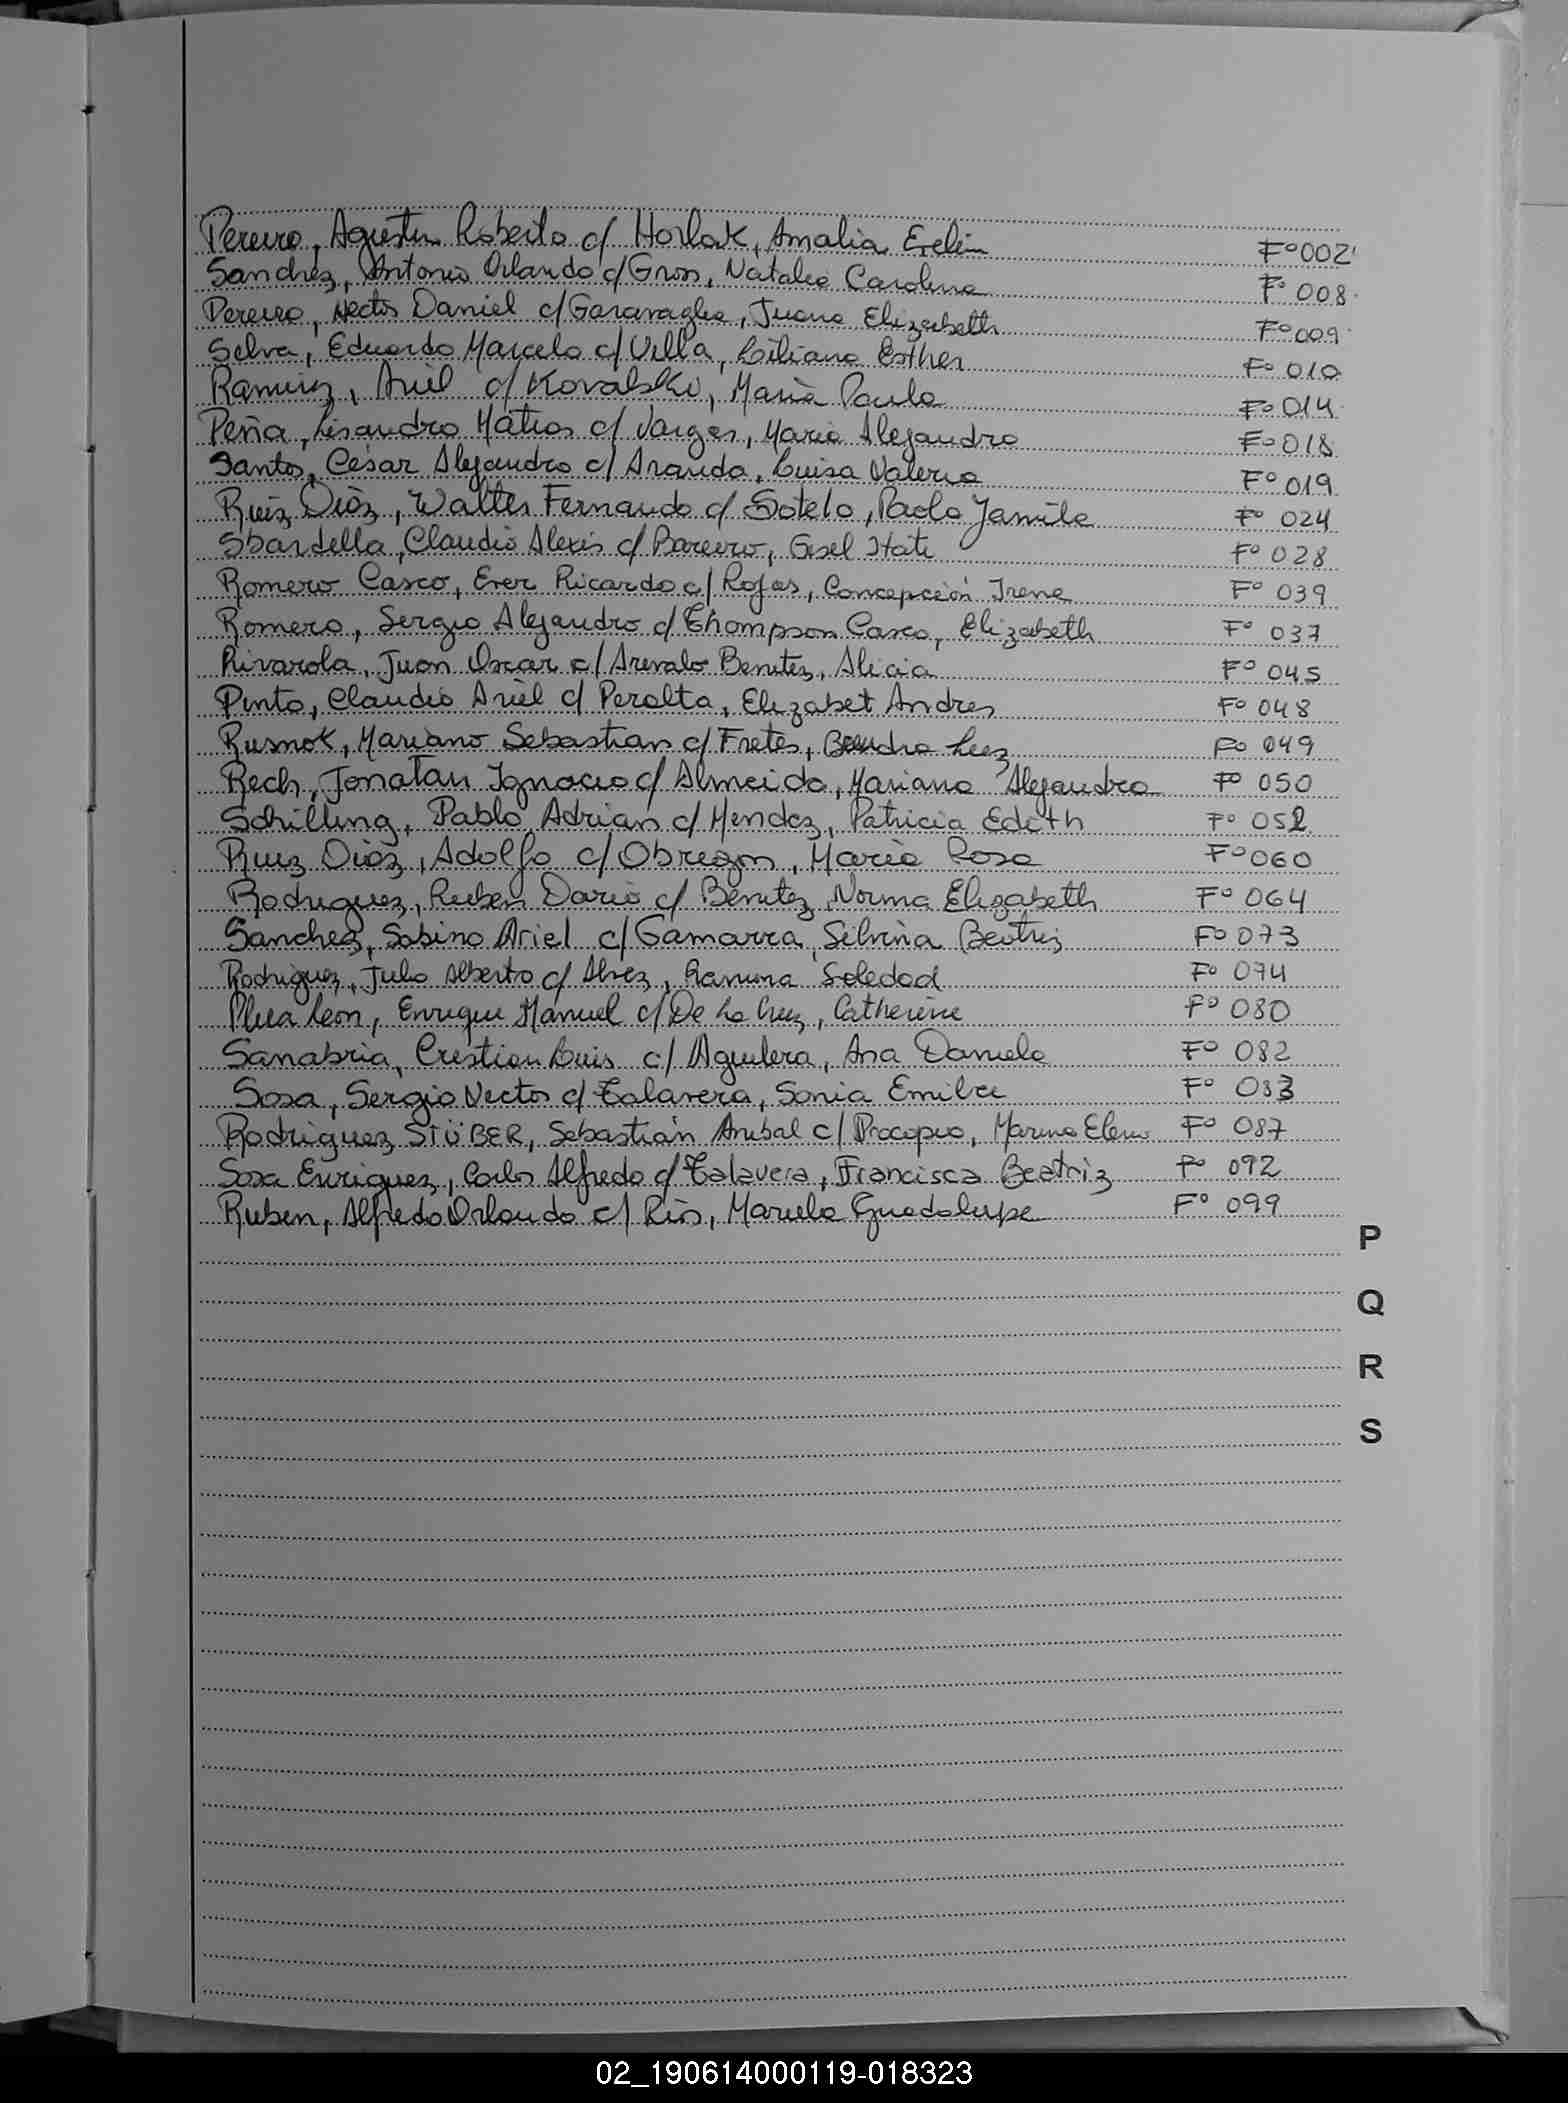 Pereiro, Agustin Roberto c/ Horlak, Amalia Evelin F° 002
Sanchez, Antonio Orlando c/ Gross, Natalia Carolina F° 008
Pereiro, Hector Daniel c/ Garavaglia, Juana Elizabeth F° 009
Selva, Eduardo Marcelo c/ Villa, Liliana Esther F° 010
Ramirez, Ariel c/ Kovalski, María Paula F° 014
Peña, Lisandro Matias c/ Vargas, Maria Alejandra F° 018
Santos, César Alejandro c/ Aranda, Luisa Valeria F° 019
Ruiz Diáz, Walter Fernando c/ Sotelo, Paola Jamila F° 024
Sbardella, Claudio Alexis c/ Bareiro, Gisel Itati F° 028
Romero Casco, Ever Ricardo c/ Rojas, Concepción Irene F° 039
Romero, Sergio Alejandro c/ Thompson Casco, Elizabeth F° 037
Rivarola, Juan Oscar c/ Arevalo Benitez, Alicia F° 045
Pinto, Claudio Ariel c/ Peralta, Elizabet Andrea F° 048
Rusnok, Mariano Sebastian c/ Fretes, Luz F° 049
Rech, Jonatan Ignacio c/ Almeida, Mariana Alejandra F° 050
Schilling, Pablo Adrian c/ Mendez, Patricia Edith F° 052
Ruiz Diáz, Adolfo c/ Obregon, María Rosa F° 060
Rodriguez, Ruben Dario c/ Benitez, Norma Elizabeth F° 064
Sanchez, Sabino Ariel c/ Gamarra, Silvina Beatriz F° 073
Rodriguez, Julio Alberto c/ Alvez, Ramona Soledad F° 074
Leon, Enrique Manuel c/ De La Cruz, Catherine F° 080
Sanabria, Cristian Luis c/ Aguilera, Ana Daniela F° 082
Sosa, Sergio Hector c/ Talavera, Sonia Emilce F° 083
Rodriguez STÖBER, Sebastián Anibal c/ Procopio, Marina Elena F° 087
Sosa Enriquez, Carlos Alfredo c/ Talavera, Francisca Beatriz F° 092
Ruben, Alfredo Orlando c/ Rios, Mariela Guadalupe F° 099
P
Q
R
S
02_190614000119-018323